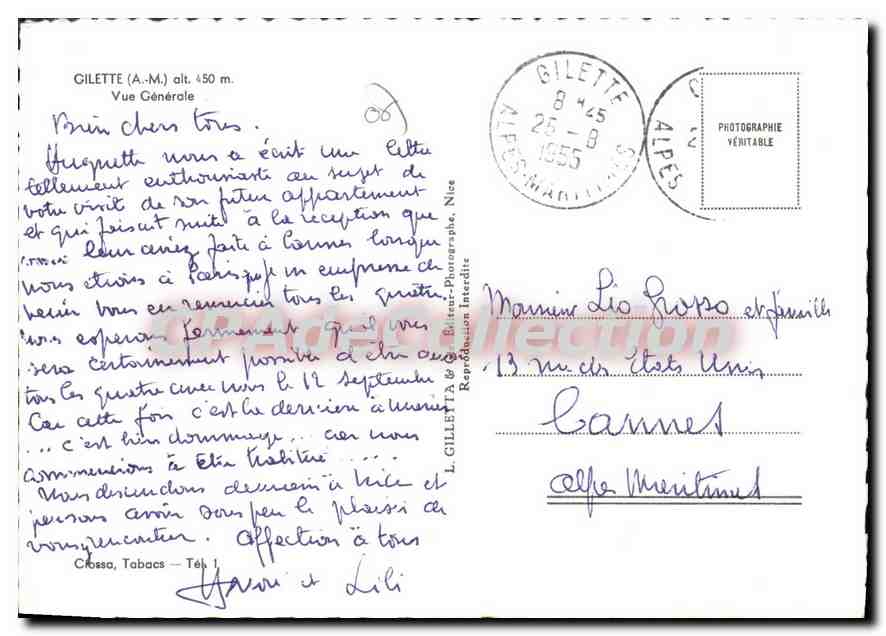 GILETTE (A.-M.) alt. 450 m.
Vue Générale
Bien chers tous.
Huguette nous a écrit une lettre
tellement enthousiaste au sujet de
votre visite de son futur appartement
et qui faisait suite à la réception que
leur aviez faite à Cannes lorsque
nous étions à Paris que je m'empresse de
venir vous en remercier tous les quatre.
nous espérons fermement qu'il vous
sera certainement possible d'être avec
tous les quatre avec nous le 12 septembre
Car cette fois c'est la dernière à marier
... c'est bien dommage... car nous
commencions à être habitué .....
Nous descendons demain à Nice et
pensons avoir sous peu le plaisir de
vous rencontrer. Affection à tous
Ciossa, Tabacs — Tél. 1
et Lili
L. GILLETTA Éditeur-Photographe, Nice
Reproduction Interdite
GILETTE
8 H 45
25 - 8
1955
ALPES-MARITIMES
ALPES
PHOTOGRAPHIE
VÉRITABLE
Monsieur Léo Grosso et famille
13 rue des Etats Unis
Cannes
Alpes Maritimes
CPAdeCollection